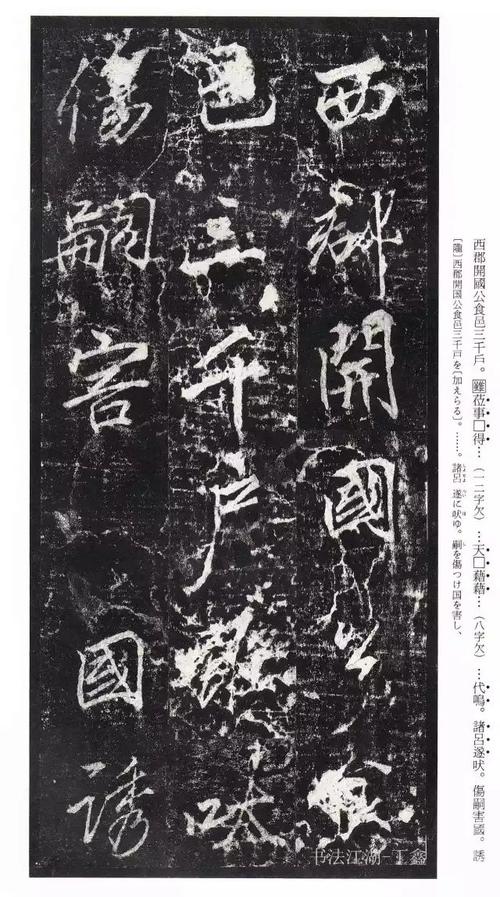 西郡開國公食邑三千戶。雖莅事□得…（一二字欠）…天□藉藉…（八字欠）…代嗚。諸呂遂吠。傷嗣害國。誘
〔隴〕西郡開国公食邑三千戸を〔加えらる〕。……。諸呂 遂に吠ゆ。嗣を傷つけ国を害し、
西郡開國公食
邑三千戶雖吠
傷嗣害國誘
书法江湖-丁鑫